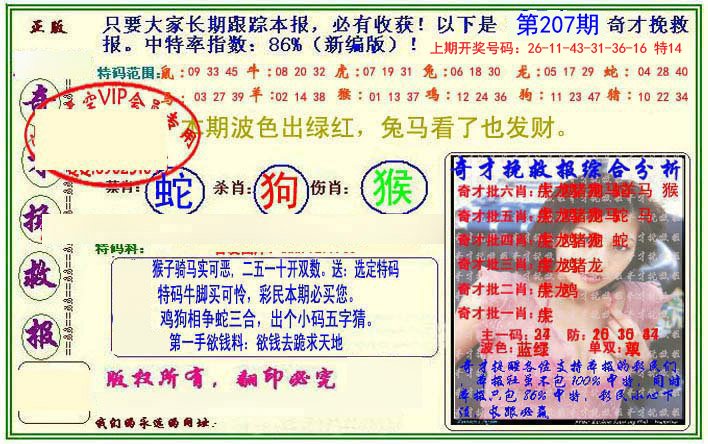 正版
只要大家长期跟踪本报，必有收获！以下是 第207期 奇才挽救
报。中特率指数：86%（新编版）！ 上期开奖号码：26-11-43-31-36-16 特14
特码范围：鼠：09 33 45 牛：08 20 32 虎：07 19 31 兔：06 18 30 龙：05 17 29 蛇：04 28 40
马：03 27 39 羊：02 14 38 猴：01 13 37 鸡：12 24 36 狗：11 23 47 猪：10 22 34
VIP会员专用
本期波色出绿红，兔马看了也发财。
奇
才
挽
救
报
蛇 杀肖：狗 伤肖：猴
特码料：
猴子骑马实可恶，二五一十开双数。送：选定特码
特码牛脚买可怜，彩民本期必买您。
鸡狗相争蛇三合，出个小码五字猜。
第一手欲钱料：欲钱去跪求天地
版权所有，翻印必究
我们的永远的网址：
奇才挽救报综合分析
奇才批六肖：马 猴
奇才批五肖：蛇 马
奇才批四肖：蛇
奇才批三肖：
奇才批二肖：
奇才批一肖：
主一码： 防：
波色：蓝绿 单双：
奇才提醒各位支持本报的彩民们
，本报社虽不包100%中特，同时
本报只包86%中特，彩民小心下
注，长跟必赢